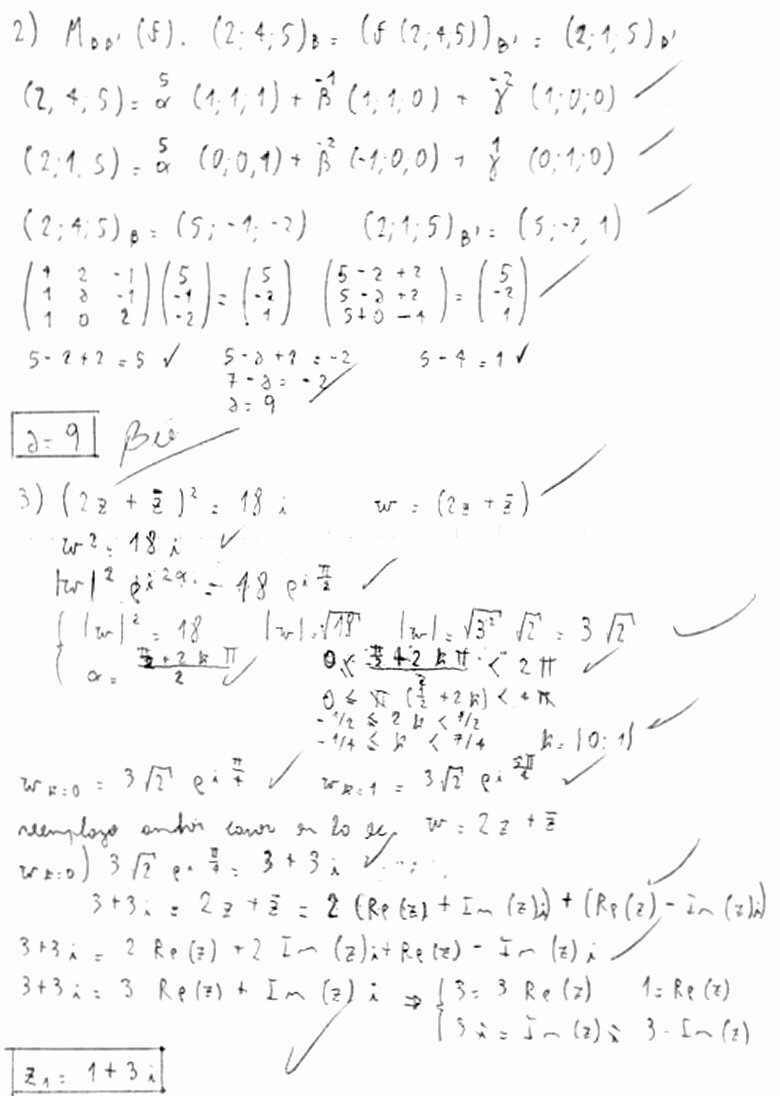 2) M_BB' (f). (2; 4; 5)_B = (f (2; 4, 5))_B' = (2; 1, 5)_B'
(2, 4; 5) = α^5 (1; 1, 1) + β^-1 (1, 1; 0) + γ^-2 (1; 0; 0)
(2; 1, 5) = α^5 (0; 0, 1) + β^-2 (-1; 0, 0) + γ^1 (0; 1; 0)
(2; 4; 5)_B = (5; -1; -2) (2; 1; 5)_B' = (5; -2, 1)
(1 2 -1 / 1 a -1 / 1 0 2) (5 / -1 / -2) = (5 / -2 / 1) (5 - 2 + 2 / 5 - a + 2 / 5 + 0 - 4) = (5 / -2 / 1)
5 - 2 + 2 = 5 ✓ 5 - a + 2 = -2 5 - 4 = 1 ✓
7 - a = -2
a = 9
a = 9 Bie
3) (2z + z̄)² = 18 i w = (2z + z̄)
w² = 18 i
|w|² e^{i 2α} = 18 e^{i π/2}
{ |w|² = 18 |w| = √18 |w| = √3² √2 = 3 √2
α = (π/2 + 2kπ)/2 0 ≤ (π/2 + 2kπ)/2 < 2π
0 ≤ π (1/2 + 2k) < 4π
-1/2 ≤ 2k < 7/2
-1/4 ≤ k < 7/4 k = {0; 1}
w_k=0 = 3√2 e^{i π/4} w_k=1 = 3√2 e^{i 5π/4}
reemplazo ambos casos en la ec. w = 2z + z̄
w_k=0) 3√2 e^{i π/4} = 3 + 3i
3+3i = 2z + z̄ = 2 (Re(z) + Im(z)i) + (Re(z) - Im(z)i)
3+3i = 2 Re(z) + 2 Im(z)i + Re(z) - Im(z)i
3+3i = 3 Re(z) + Im(z) i ⇒ { 3 = 3 Re(z) 1 = Re(z)
3i = Im(z)i 3 = Im(z)
z₁ = 1 + 3i